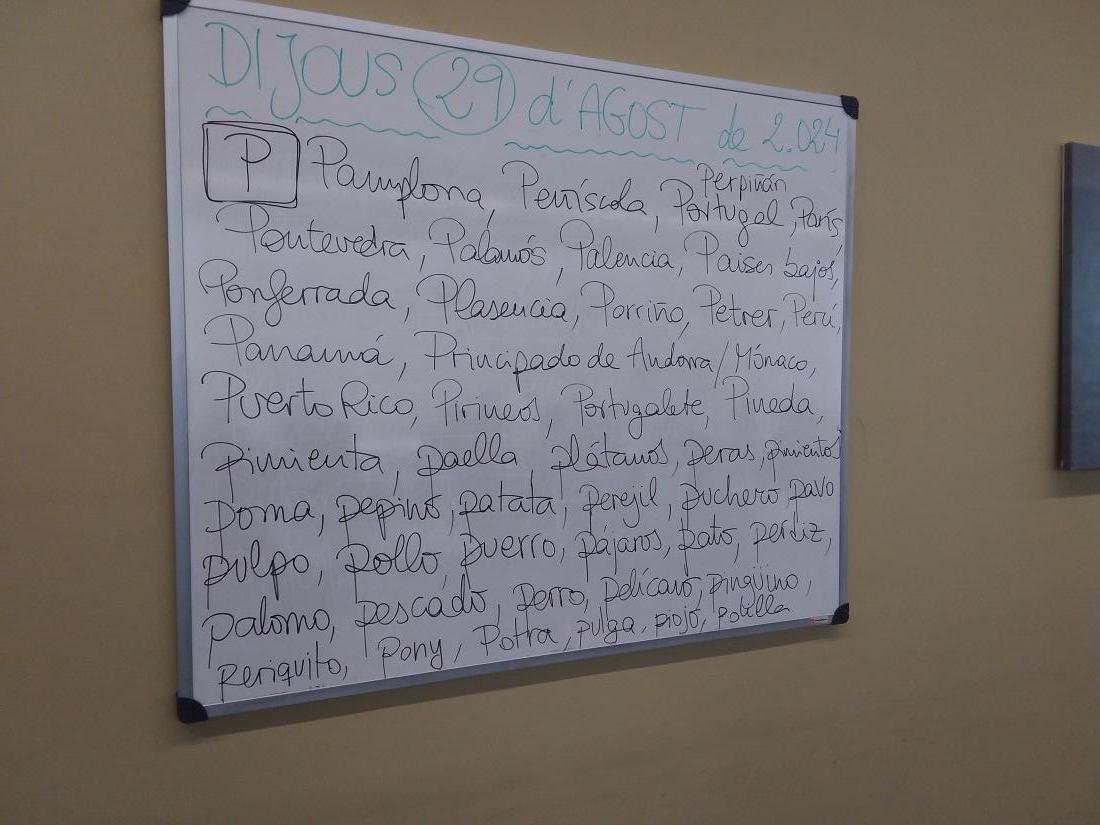 DIJOUS 29 d'AGOST de 2.024
P Pamplona, Peñíscola, Portugal, París,
Perpiñán
Pontevedra, Palamós, Palencia, Paises bajos,
Ponferrada, Plasencia, Porriño, Petrer, Perú,
Panamá, Principado de Andorra/Mónaco,
Puerto Rico, Pirineos, Portugalete, Pineda,
pimienta, paella, plátanos, peras, pimientos
poma, pepino, patata, perejil, puchero, pavo
pulpo, pollo, puerro, pájaros, pato, perdiz,
palomo, pescado, perro, pelícano, pingüino,
periquito, pony, Potra, pulga, piojo, polilla